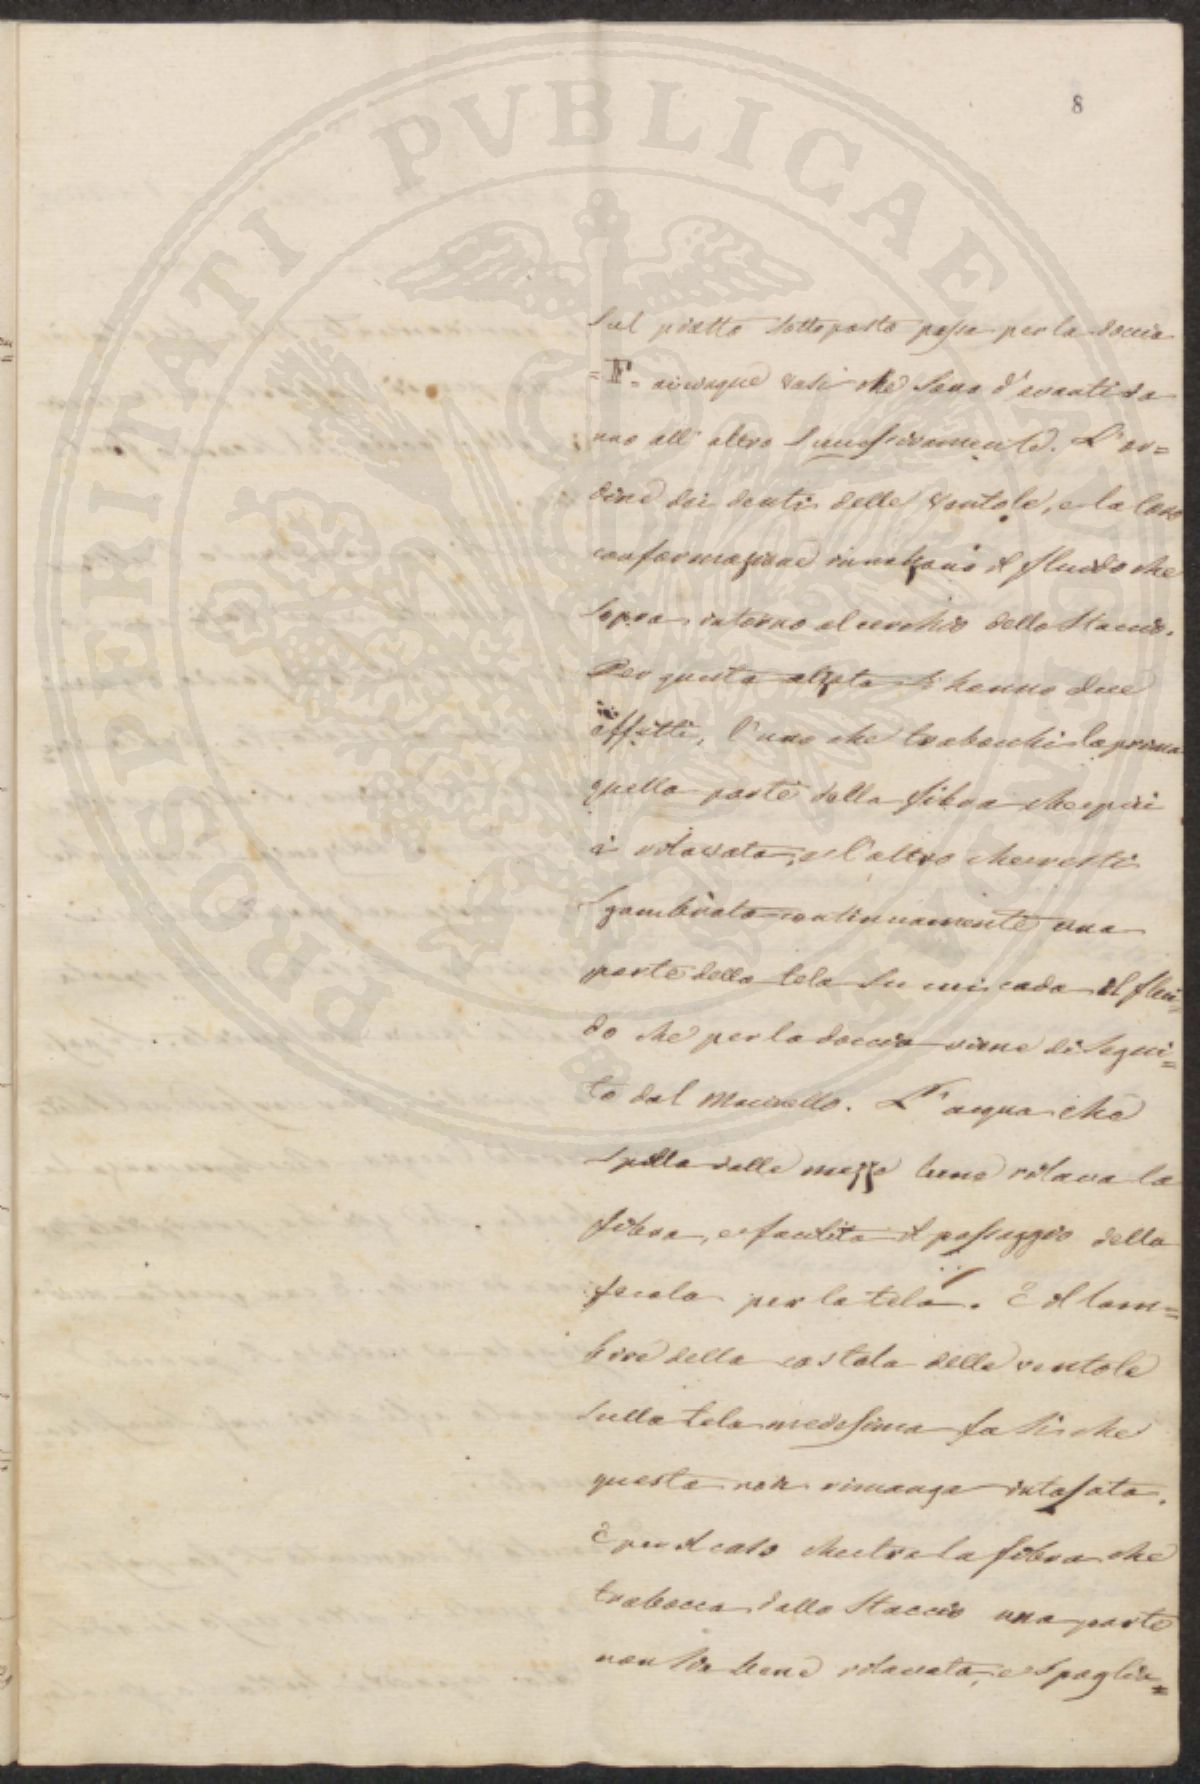 8
PROSPERITATI PVBLICAE
sul piatto sottoposto passa per la doccia
=F= ai cinque vasi che sono d'avanti da
uno all'altro successivamente. L'or=
dine dei denti delle ventole, e la loro
conformazione innalzano il fluido che
sopra intorno al cerchio dello staccio.
Per questa alzata si hanno due
effetti, l'uno che trabocchi la prima
quella parte della fibra che più
è rilavata, e l'altro che resti
sgombrata continuamente una
parte della tela su cui cada il flui=
do che per la doccia viene di segui=
to dal Macinello. L'acqua che
spilla dalle mezze lune rilava la
fibra, e facilita il passaggio della
fecola per la tela. E il lam=
bire della costola delle ventole
sulla tela medesima fa si che
questa non rimanga intasata.
E per il caso che tra la fibra che
trabocca dallo staccio una parte
non sia bene rilavata, e spoglia=